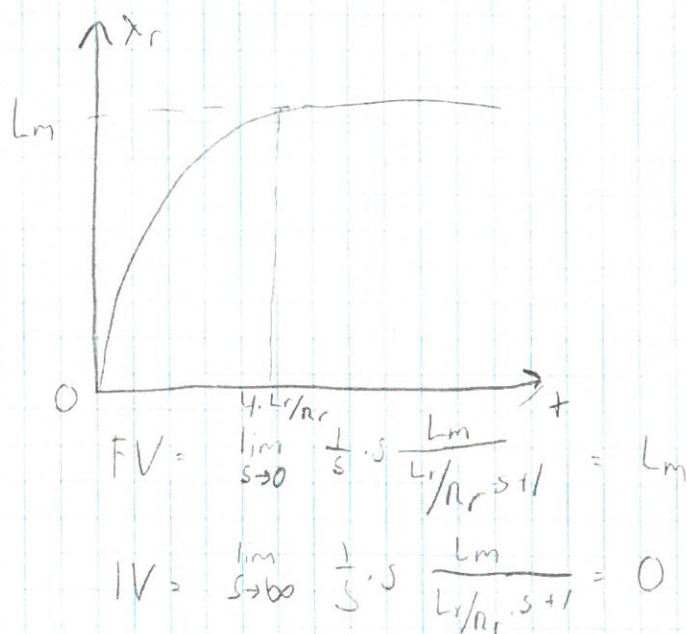 λr
Lm
0
4·Lr/Rr
t
FV = lim s→0 1/s · s Lm / (Lr/Rr · s+1) = Lm
IV = lim s→∞ 1/s · s Lm / (Lr/Rr · s+1) = 0